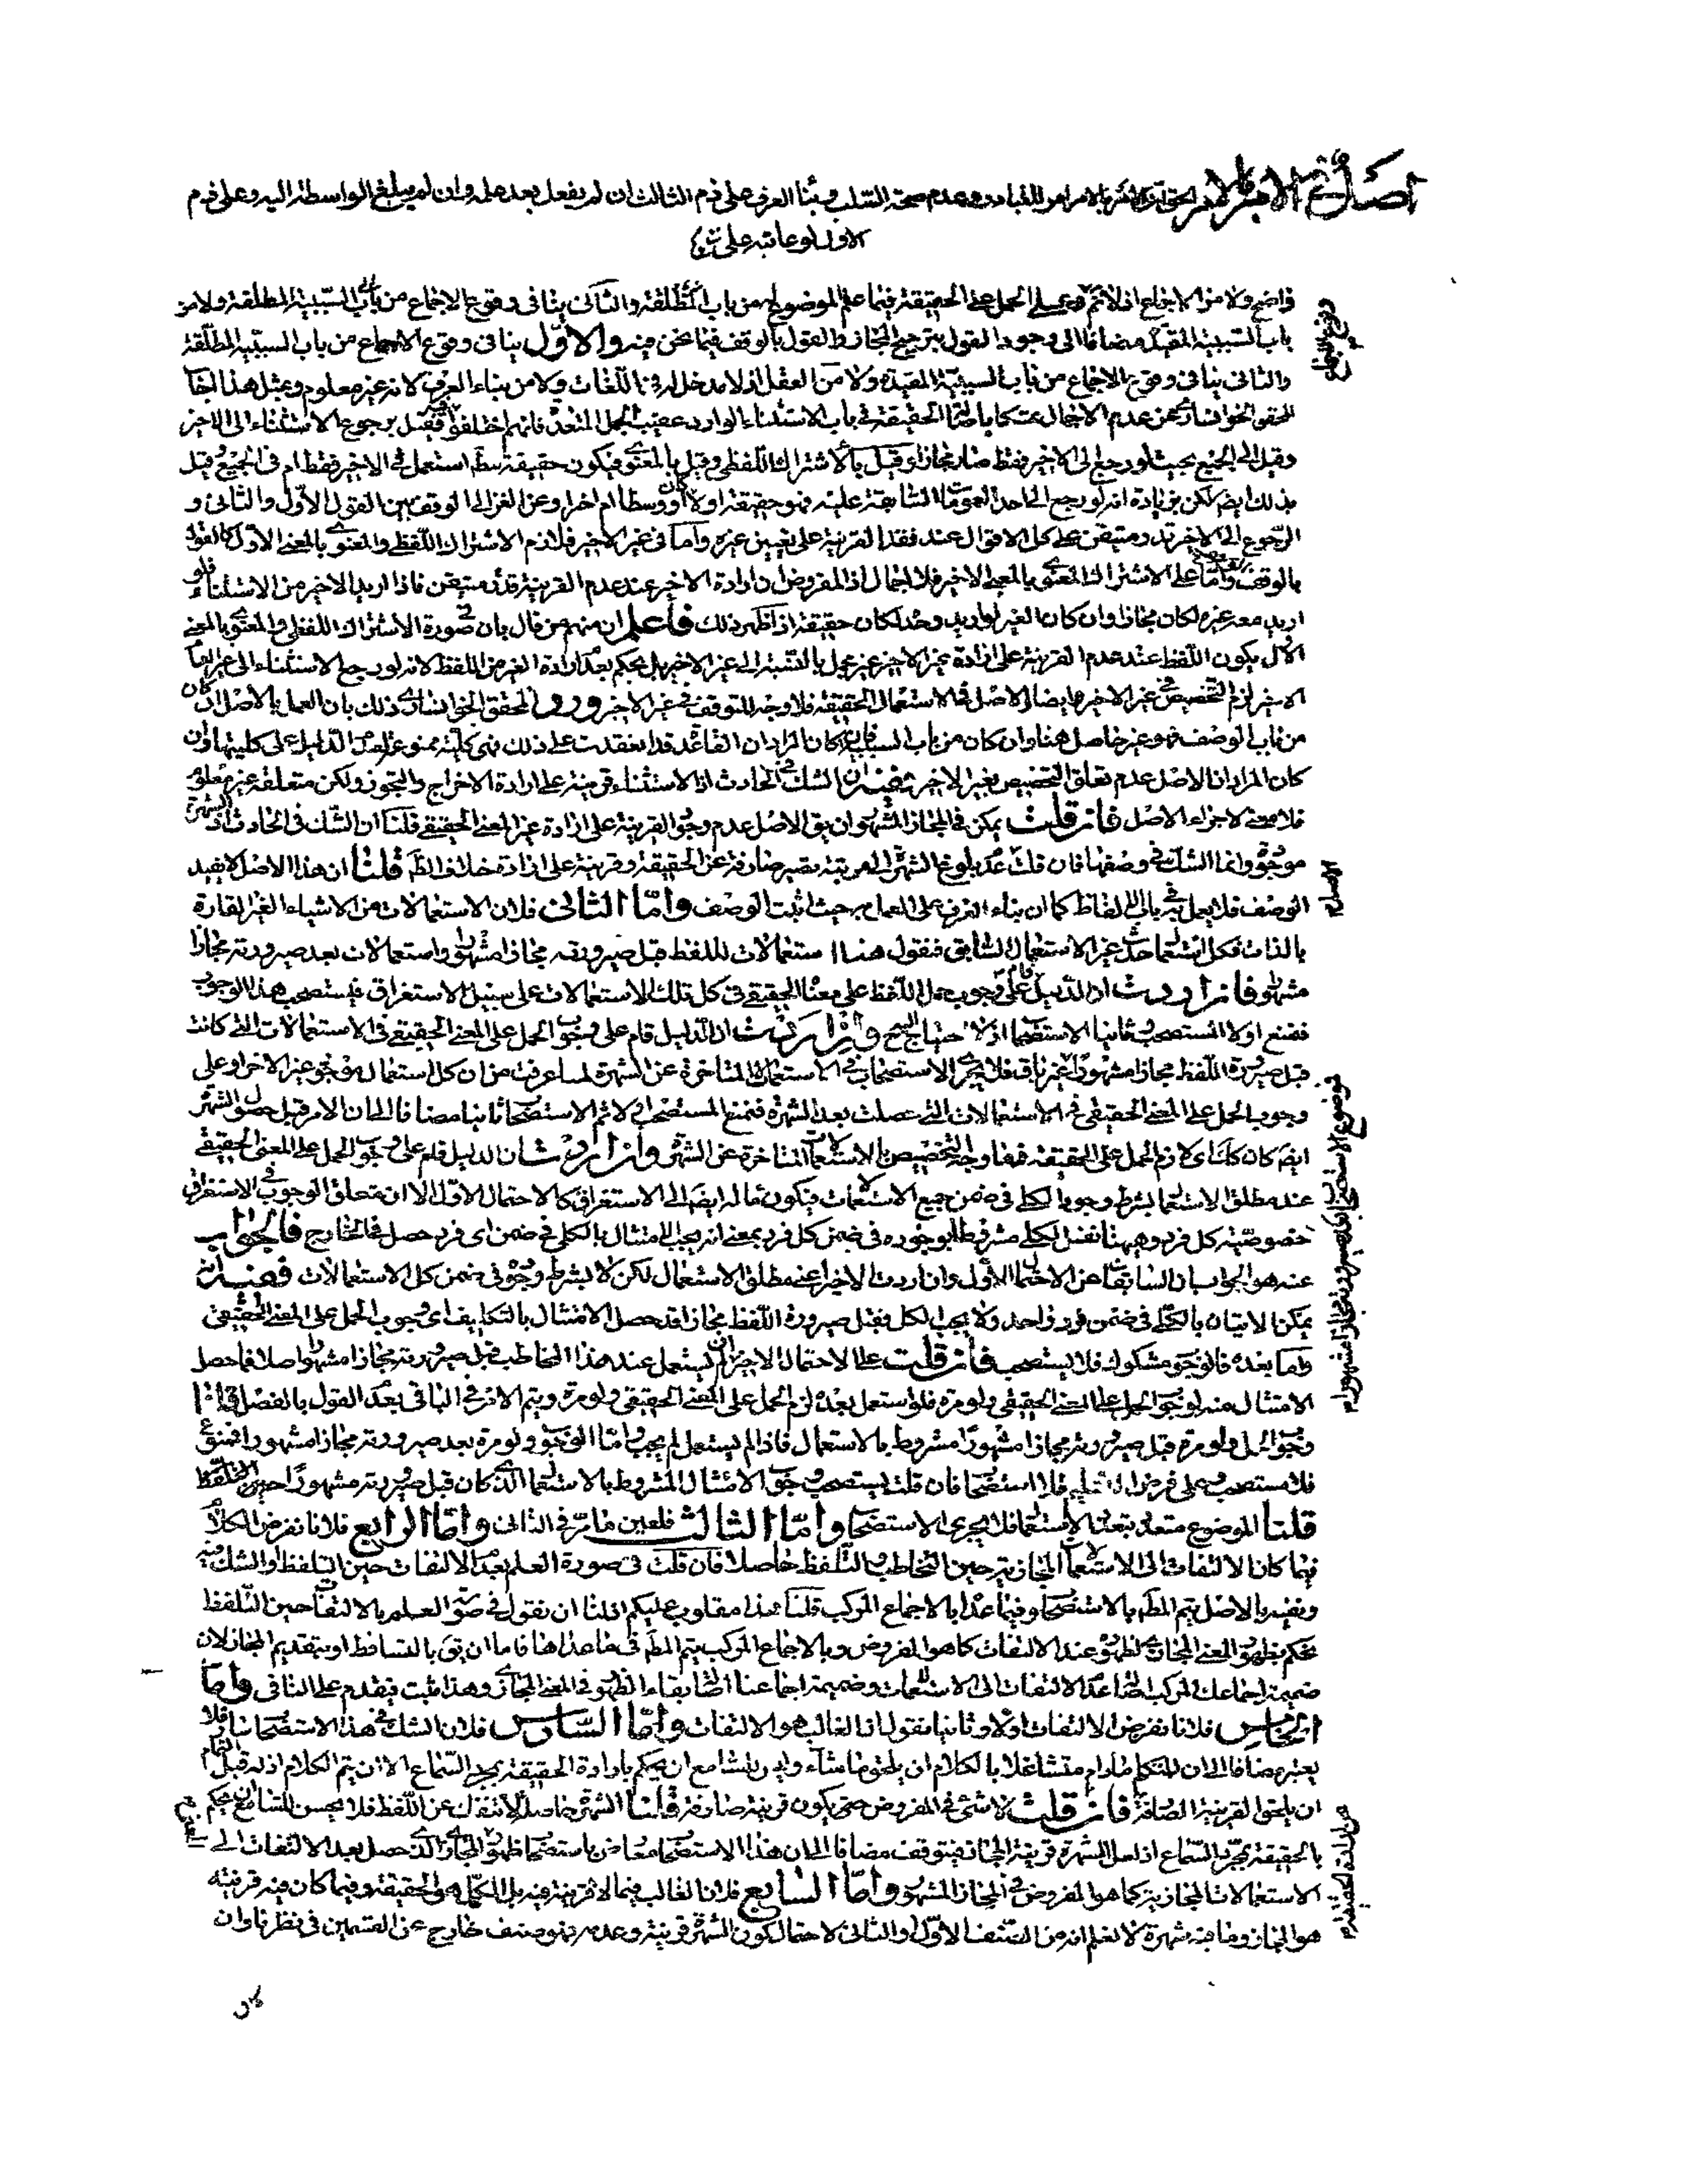 الحق ان الامر بالامر امر للتبادر وعدم صحة السلب وبناء العرف على ذم الثالث ان لم يفعل بعد علمه وان لم يبلغ الواسطة اليه وعلى ذم
الاول لو عاتبه على
واضح ولا من الاجماع اذ لا على الحمل على الحقيقة فيما علم الموضوع له من باب المطلقة والثانى ينافى وقوع الاجماع من باب السببية المطلقة ولا من
باب السببية المقيدة مضافا الى وجود القول بترجيح المجاز والقول بالوقف فيما نحن فيه والاول ينافى وقوع الاجماع من باب السببية المطلقة
والثانى ينافى وقوع الاجماع من باب السببية المقيدة ولا من العقل اذ لا مدخل له فى اللغات ولا من بناء العرف لانه غير معلوم وبمثل هذا
المحقق الخوانسارى عن عدم الاجمال متمسكا باصالة الحقيقة فى باب الاستثناء الوارد عقيب الجمل المتعددة فانهم اختلفوا فقيل برجوع الاستثناء الى الاخير
وقيل الى الجميع بحيث لو رجع الى الاخير فقط صار مجازا وقيل بالاشتراك اللفظى وقيل بالمعنوى فيكون حقيقة استعمل فى الاخير فقط ام فى الجميع وقيل
بذلك ايضا لكن بزيادة انه لو رجع الى احد العمومات السابقة عليه فهو حقيقة اولا كان او وسطا ام اخرا وعن الغزالى الوقف بين القول الاول والثانى و
الرجوع الى الاخير قدر متيقن على كل الاقوال عند فقد القرينة على تعيين غيره واما فى غير الاخير فلازم الاشتراك اللفظى والمعنوى بالمعنى الاول كالقول
بالوقف واما على الاشتراك المعنوى بالمعنى الاخير فلا اجمال اذ المفروض ان ارادة الاخير عند عدم القرينة قدر متيقن فاذا اريد الاخير من الاستثناء فلو
اريد معه غيره لكان مجازا وان كان الغير لو اريد وحده لكان حقيقة اذا ظهر ذلك فاعلم ان منهم من قال بان فى صورة الاشتراك اللفظى والمعنوى بالمعنى
الاول يكون اللفظ عند عدم القرينة على ارادة غير الاخير غير مجمل بالنسبة الى غير الاخير بل يحكم بعدم ارادة الغير من اللفظ لانه لو رجع الاستثناء الى غير
الاخير لزم التخصيص فى غير الاخير ايضا والاصل فى الاستعمال الحقيقة فلا وجه للتوقف فى غير الاخير ورد المحقق الخوانسارى ذلك بان العمل بالاصل ان كان
من باب الوصف فهو غير حاصل هنا وان كان من باب السببية فان كان المراد ان القاعدة قد انعقدت على ذلك فهى كلية ممنوع لعدم الدليل على كليتها وان
كان المراد ان الاصل عدم تعلق التخصيص بغير الاخير ففيه ان الشك فى الحادث اذ الاستثناء قرينة على ارادة الاخراج والتجوز ولكن متعلقه غير معلوم
فلا معنى لاجراء الاصل فان قلت يمكن فى المجاز المشهور ان يق الاصل عدم وجود القرينة على ارادة غير المعنى الحقيقى قلنا ان الشك فى الحادث اذ الشهرة
موجودة وانما الشك فى وصفها فان قلت عدم بلوغ الشهرة الى مرتبة يصير صارفة عن الحقيقة وقرينة على ارادة خلاف الظ قلنا ان هذا الاصل لا يفيد
الوصف فلا يعمل به فى باب الالفاظ كما ان بناء العرف على العمل به حيث اثبت الوصف واما الثانى فلان الاستعمالات من الاشياء الغير القارة
بالذات فكل استعمال حدث غير الاستعمال السابق فنقول هنا استعمالات للفظ قبل صيرورته مجازا مشهورا واستعمالات بعد صيرورته مجازا
مشهورا فان اردت ان الدليل قام على وجوب حمل اللفظ على معناه الحقيقى فى كل تلك الاستعمالات على سبيل الاستغراق فيستصحب هذا الوجوب
فنمنع اولا المستصحب وثانيا الاستصحاب اذ لا حينئذ وان اردت ان الدليل قام على وجوب الحمل على المعنى الحقيقى فى الاستعمالات التى كانت
قبل صيرورة اللفظ مجازا مشهورا لا غير فلا يجرى الاستصحاب فى الاستعمالات المتاخرة عن الشهرة لما عرفت من ان كل استعمال موجود غير الاخر او على
وجوب الحمل على المعنى الحقيقى فى الاستعمالات التى حصلت بعد الشهرة فنمنع المستصحب اولا ثم الاستصحاب ثانيا مضافا الى ان الامر قبل حصول الشهرة
ايضا كان كك اى لازم الحمل على الحقيقة فما وجه التخصيص بالاستعمالات المتاخرة عن الشهرة وان اردت ان الدليل قام على وجوب الحمل على المعنى الحقيقى
عند مطلق الاستعمال بشرط وجود الكلى فى ضمن جميع الاستعمالات فيكون ماله ايضا الى الاستغراق كالاحتمال الاول الا ان متعلق الوجوب فى الاستغراق
خصوصية كل فرد وهيهنا نفس الكلى مشروطا بوجوده فى ضمن كل فرد بمعنى انه يجب الامتثال بالكلى فى ضمن اى فرد حصل فى الخارج فالجواب
عنه هو الجواب السابق عن الاحتمال الاول وان اردت الاخير اعنى مطلق الاستعمال لكن لا بشرط وجوده فى ضمن كل الاستعمالات ففيه انه
يمكن الاتيان بالكلى فى ضمن فرد واحد ولا يجب الكل فقبل صيرورة اللفظ مجازا قد حصل الامتثال بالتكليف اى وجوب الحمل على المعنى الحقيقى
واما بعده فالوجوب مشكوك فلا يستصحب فان قلت على الاحتمال الاخير ان لم يستعمل عند هذا المخاطب قبل صيرورته مجازا مشهورا اصلا فما حصل
الامتثال منه لوجوب الحمل على المعنى الحقيقى ولو مرة فلو استعمل بعده لزم الحمل على المعنى الحقيقى ولو مرة ويتم الامر فى الباقى بعدم القول بالفصل قلنا
وجوب الحمل ولو مرة قبل صيرورته مجازا مشهورا مشروط بالاستعمال فاذا لم يستعمل لم يجب واما الوجوب ولو مرة بعد صيرورته مجازا مشهورا فممنوع
فلا مستصحب وعلى فرض التسليم فلا استصحاب فان قلت يستصحب وجوب الامتثال المشروط بالاستعمال الذى كان قبل صيرورته مشهورا
قلنا الموضوع متعدد بتعدد الاستعمال فلا يجرى الاستصحاب واما الثالث فلعين ما مر فى الثانى واما الرابع فلانا نفرض الكلام
فيما كان الالتفات الى الاستعمالات المجازية حين التخاطب والتلفظ حاصلا فان قلت فى صورة العلم بعدم الالتفات حين التلفظ او الشك فيه
ونفيه بالاصل يتم المط بالاستصحاب وفيما عداه بالاجماع المركب قلنا هذا مقلوب عليكم اذ لنا ان نقول فى صورة العلم بالالتفات حين التلفظ
نحكم بظهور المعنى المجازى لظهوره عند الالتفات كما هو المفروض وبالاجماع المركب يتم المط فى ما عداها فاما ان يق بالتساقط او بتقديم المجاز لان
ضميمة اجماعك المركب اصالة عدم الالتفات الى الاستعمالات وضميمة اجماعنا اصالة بقاء الظهور فى المعنى المجازى وهذا مثبت فيقدم على النافى واما
الخامس فلانا نفرض الالتفات اولا وثانيا نقول ان الغالب هو الالتفات واما السادس فلان الشك فى هذا الاستصحاب سار فلا
يعتبر مضافا الى ان للمتكلم مادام متشاغلا بالكلام ان يلحق ما شاء وليس للسامع ان يحكم بارادة الحقيقة بمجرد السماع الا ان يتم الكلام اذ له قبل التمام
ان يلحق القرينة الصارفة فان قلت لا شئ فى المفروض حتى يكون قرينة صارفة قلنا الشهرة حاصلة لا تنفك عن اللفظ فلا يحسن للسامع ان يحكم
بالحقيقة بمجرد السماع اذ لعل الشهرة قرينة المجاز فيتوقف مضافا الى ان هذا الاستصحاب معارض باستصحاب ظهور المجاز الذى حصل بعد الالتفات الى
الاستعمالات المجازية كما هو المفروض فى المجاز المشهور واما السابع فلان الغالب فيما لا قرينة فيه بل الكل هو الحقيقة وفيما كان فيه قرينة
هو المجاز وما فيه شهرة لا نعلم انه من الصنف الاول والثانى لاحتمال كون الشهرة قرينة وعدمه فهو صنف خارج عن القسمين فى نظرنا وان
كان